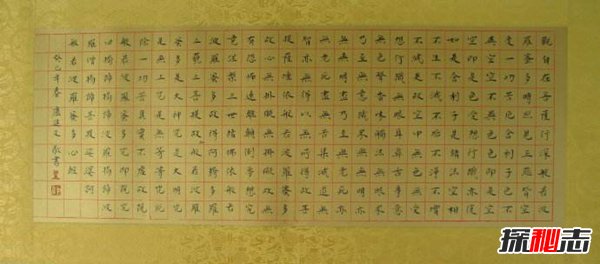 觀自在菩薩行深般若波
羅蜜多時照見五蘊皆空
度一切苦厄舍利子色不
異空空不異色色即是空
空即是色受想行識亦復
如是舍利子是諸法空相
不生不滅不垢不淨不增
不減是故空中無色無受
想行識無眼耳鼻舌身意
無色聲香味觸法無眼界
乃至無意識界無無明亦
無無明盡乃至無老死亦
無老死盡無苦集滅道無
智亦無得以無所得故菩
提薩埵依般若波羅蜜多
故心無掛礙無掛礙故無
有恐怖遠離顛倒夢想究
竟涅槃三世諸佛依般若
波羅蜜多故得阿耨多羅
三藐三菩提故知般若波羅
蜜多是大神咒是大明咒
是無上咒是無等等咒能
除一切苦真實不虛故說
般若波羅蜜多咒即說咒
曰揭諦揭諦波羅揭諦波
羅僧揭諦菩提娑婆訶
般若波羅蜜多心經
癸巳年春 敬書
探秘志